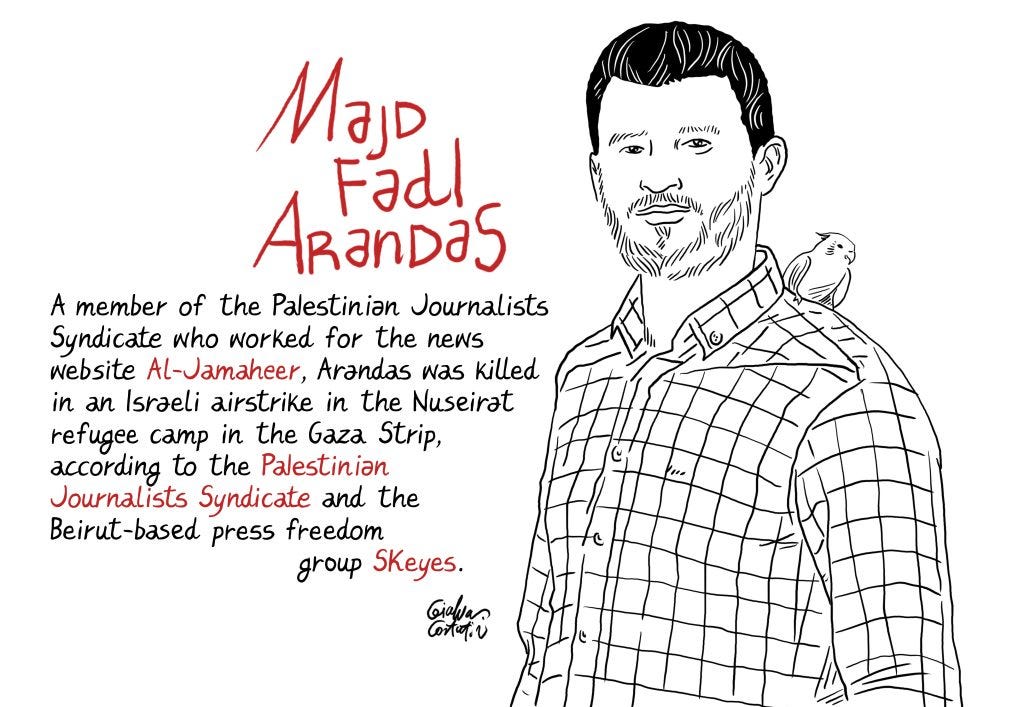 Majd
Fadl
Arandas
A member of the Palestinian Journalists
Syndicate who worked for the news
website Al-Jamaheer, Arandas was killed
in an Israeli airstrike in the Nuseirat
refugee camp in the Gaza Strip,
according to the Palestinian
Journalists Syndicate and the
Beirut-based press freedom
group SKeyes.